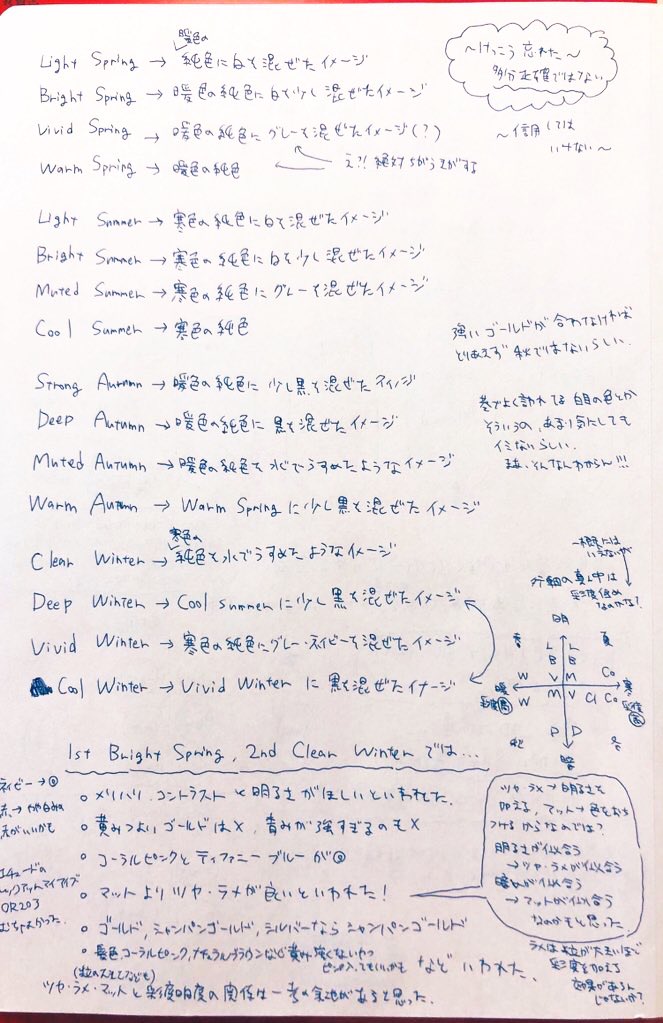 ～けっこう忘れた～
多分正確ではない
～信用しては
いけない～
暖色の
Light Spring → 純色に白を混ぜたイメージ
Bright Spring → 暖色の純色に白を少し混ぜたイメージ
Vivid Spring → 暖色の純色にグレーを混ぜたイメージ(?)
Warm Spring → 暖色の純色
え?!絶対ちがう気がする
Light Summer → 寒色の純色に白を混ぜたイメージ
Bright Summer → 寒色の純色に白を少し混ぜたイメージ
Muted Summer → 寒色の純色にグレーを混ぜたイメージ
Cool Summer → 寒色の純色
強いゴールドが合わなければ
とりあえず秋ではないらしい.
Strong Autumn → 暖色の純色に少し黒を混ぜたイメージ
Deep Autumn → 暖色の純色に黒を混ぜたイメージ
Muted Autumn → 暖色の純色を水でうすめたようなイメージ
Warm Autumn → Warm Springに少し黒を混ぜたイメージ
巷でよく言われてる白目の色とか
そういうの、あまり気にしても
イミないらしい.
まあ、そんなんわからん!!!
寒色の
Clear Winter → 純色を水でうすめたようなイメージ
Deep Winter → Cool summerに少し黒を混ぜたイメージ
Vivid Winter → 寒色の純色にグレー・ネイビーを混ぜたイメージ
Cool Winter → Vivid Winterに黒を混ぜたイメージ
～概には
いえないが
真ん中は
彩度低め
なのかな?
明
春 L L 夏
B B
W V M Co
暖 寒
彩度高 彩度高
W M V Cl Co
秋 D D 冬
暗
1st Bright Spring, 2nd Clear Winterでは...
ネイビー→◎
○ メリハリ、コントラストと明るさがほしいといわれた.
○ 黄みつよいゴールドは×, 青みが強すぎるのも×
○ コーラルピンクとティファニーブルーが◎
○ マットよりツヤ・ラメが良いといわれた!
○ ゴールド, シャンパンゴールド, シルバーならシャンパンゴールド
○ 髪色、コーラルピンク、ナチュラルブラウンなど黄み強くないやつ
ピンク入ってもいいかも などいわれた.
(粒の大きさなども)
ツヤ・ラメ・マットと彩度明度の関係は一考の余地があると思った.
エチュードの
ルックアットマイアイズ
OR203
むちゃよかった.
ツヤ・ラメ→明るさを
加える, マット→色をおち
つけるからなのでは?
明るさが似合う
→ツヤ・ラメが似合う
暗いが似合う
→マットが似合う
なのかもと思った
ラメは粒が大きいほど
彩度を加える
効果があるん
じゃないか?